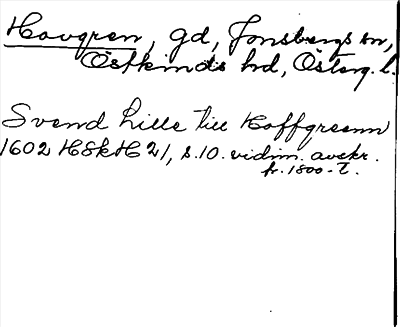 Hovgren, gd, Jonsbergs sn,
Östkinds hd, Österg. l.
Svend Lille till Hoffgreenn
1602 HSkH 21, s. 10. vidim. avskr.
fr. 1800-t.